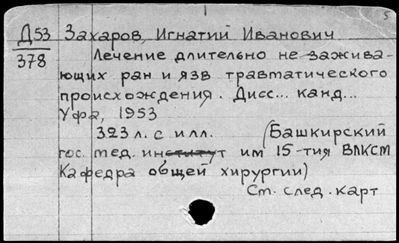 Д53 Захаров, Игнатий Иванович
378 Лечение длительно не зажива-
ющих ран и язв травматического
происхождения. Дисс... канд...
Уфа, 1953
323 л. с илл. (Башкирский
гос. мед. институт им 15-тия ВЛКСМ
Кафедра общей хирургии)
Ст. след. карт